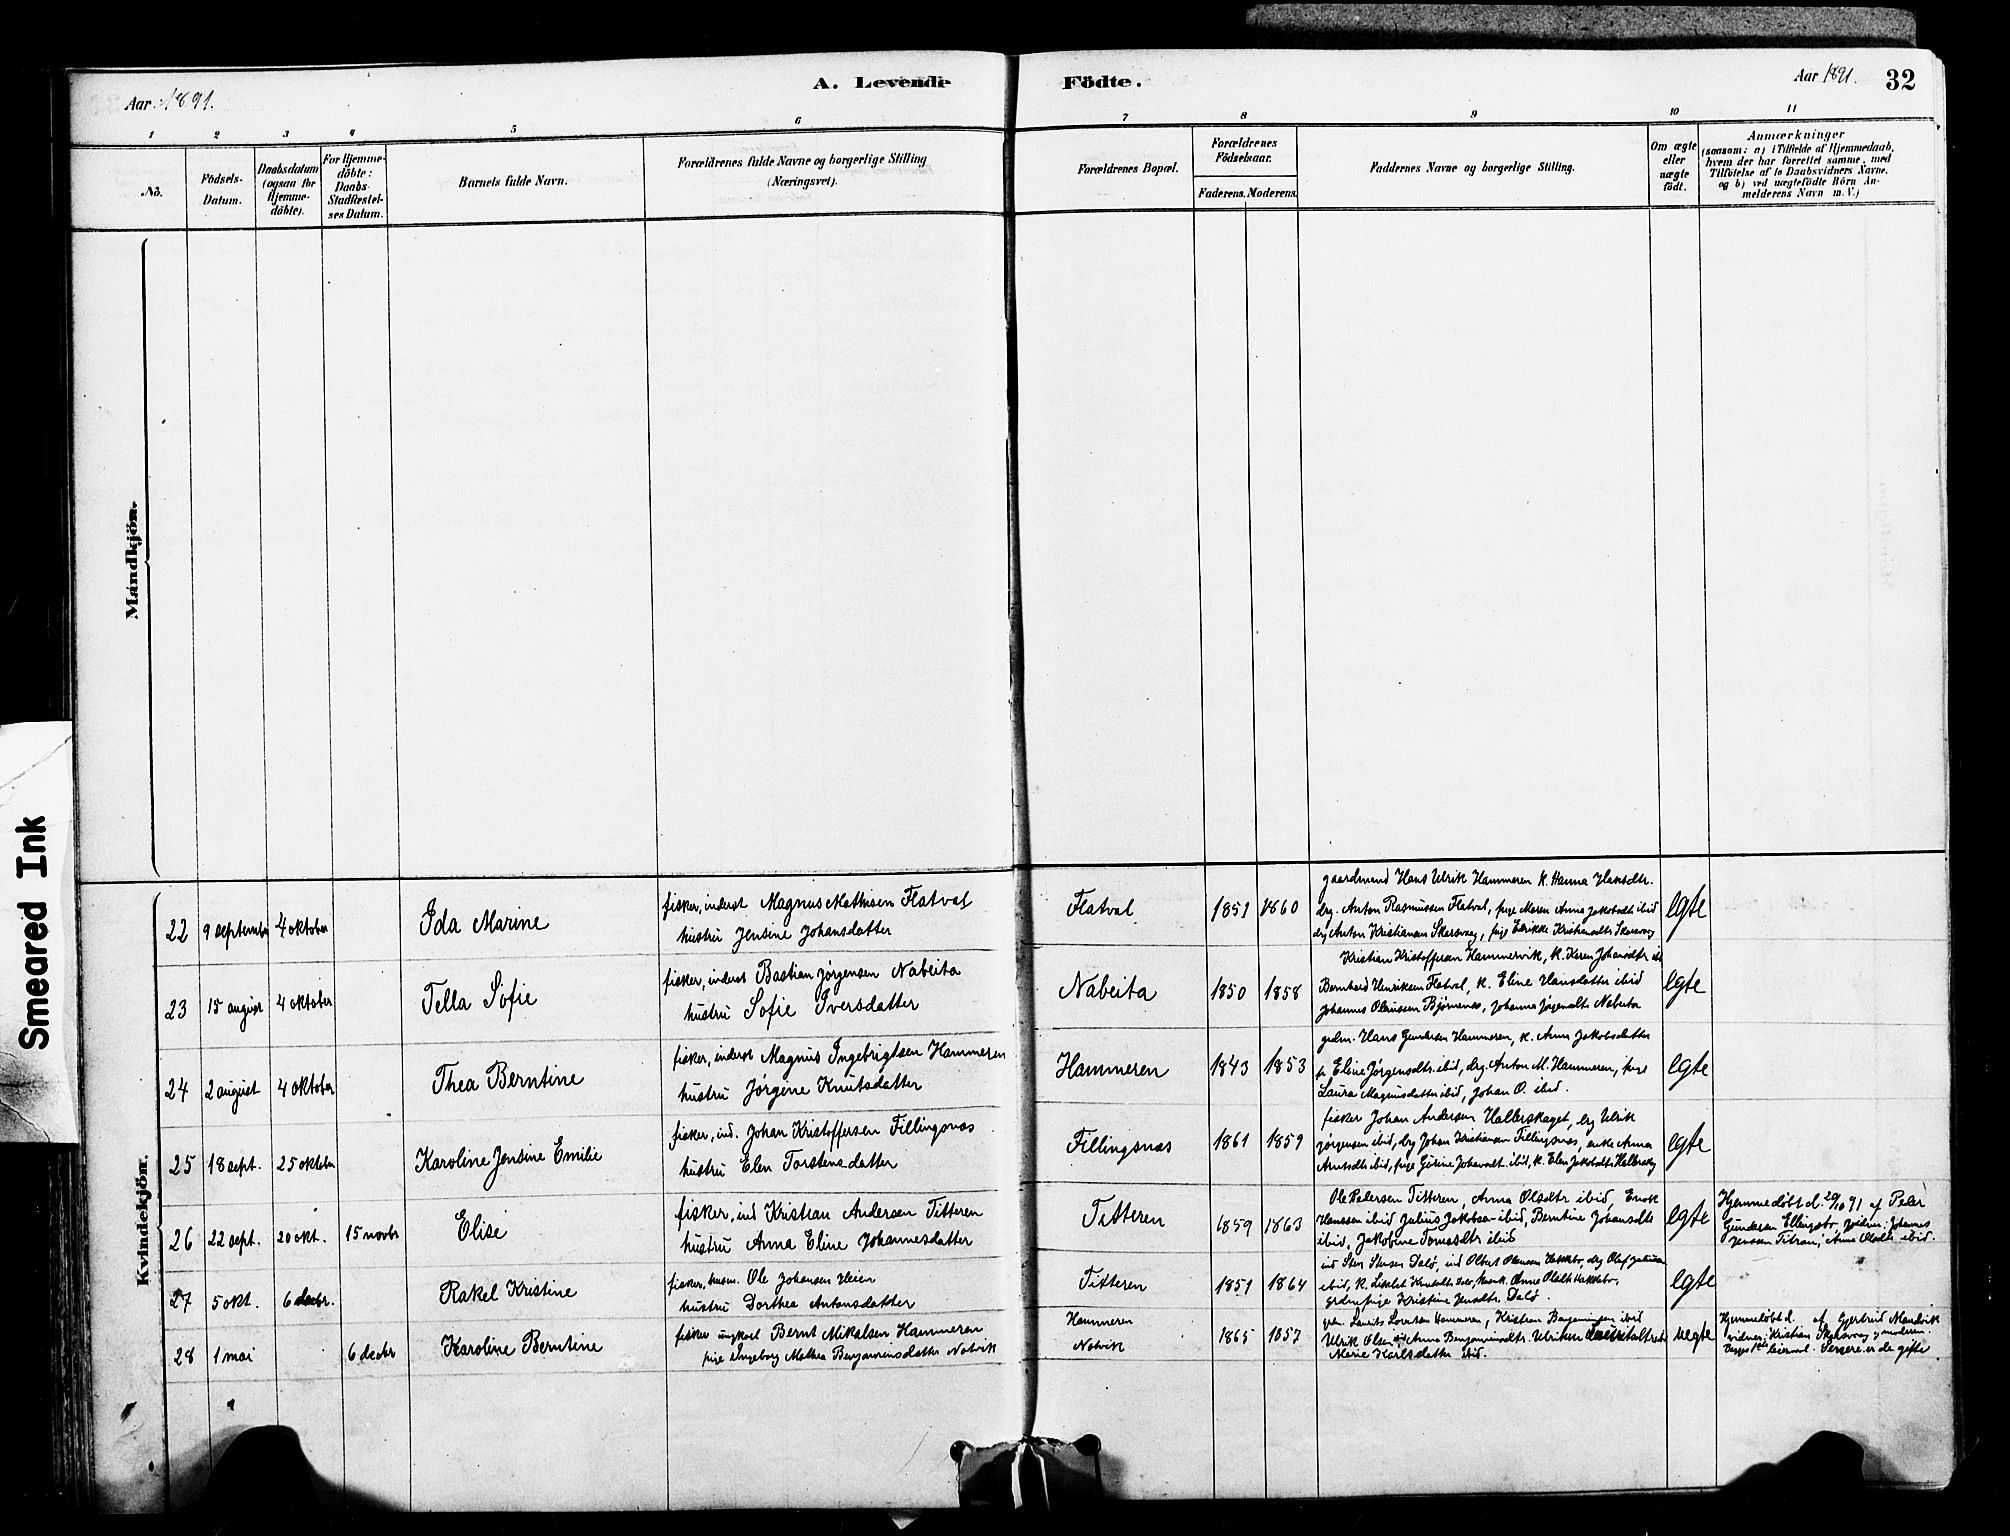 A. Levende Födte.
Aar 1891.
Aar 1891.
32
1 2 3 4 5 6 7 8 9 10 11
No.
Födsels-Datum.
Daabsdatum (ogsaa for Hjemme-döbte).
For Hjemme-döbte: Daabs-Stadfæstel-ses Datum.
Barnets fulde Navn.
Forældrenes fulde Navne og borgerlige Stilling (Næringsvei).
Forældrenes Bopæl.
Forældrenes Födselsaar.
Faderens. Moderens.
Faddernes Navne og borgerlige Stilling.
Om ægte eller uægte födt.
Anmærkninger (saasom: a) i Tilfælde af Hjemmedaab, hvem der har forrettet samme, med Tilföielse af to Daabsvidners Navne, og b) ved uægtefödte Börn An-melderens Navn m. V.)
Mandkjön.
Smeared Ink
Kvindekjön.
22 9 september 4 oktober Ida Marine
fisker, inderst Magnus Mathisen Flatval
hustru Jensine Johansdatter
Flatval 1851 1860
gaardmand Hans Ulrik Hammeren k. Hanna Hansdtr.
drg. Anton Rasmussen Flatval, pige Maren Anna Jakobsdtr ibid
drg Anton Kristiansen Skarsvaag, pige Kristiansdtr Skarsvaag
ægte
23 15 august 4 oktober Tella Sofie
fisker, inderst Bastian Jørgensen Nabeita
hustru Sofie Iversdatter
Nabeita 1850 1858
Kristian Kristoffersen Hammervik, k. Karen Johansdtr
Bernhard Henriksen Flatval, k. Eline Hansdatter ibid
Johannes Olaussen Bjørnenes, Johanna Jørgensdtr Nabeita
ægte
24 2 august 4 oktober Thea Berntine
fisker, inderst Magnus Ingebrigtsen Hammeren
hustru Jørgine Knutsdatter
Hammeren 1843 1853
gdm. Hans Gundersen Hammeren, k. Anna Jakobsdatter
p. Eline Jørgensdtr. ibid, drg. Anton M. Hammeren, pige
Laura Magnusdatter ibid, Johan O. ibid.
ægte
25 18 sept. 25 oktober Karoline Jensine Emilie
fisker, ind. Johan Kristoffersen Fillingsnæs
hustru Elen Torstensdatter
Fillingsnæs 1861 1859
fisker Johan Andersen Hallerskaget, drg Ulrik
Jørgensen ibid, drg Johan Kristiansen Fillingsnæs, enke Anna
Arntsdtr ibid, pige Johansdt. ibid, k. Elen Jakobsdtr
ægte
26 22 sept. 20 okt. 15 novbr Elise
fisker, ind Kristian Andersen Titteren
hustru Anna Eline Johannesdatter
Titteren 1859 1863
Ole Pedersen Titteren, Anna Olsdtr ibid, Enok
Hanssen ibid Julius Jakobsen ibid, Berntine Johansdtr
ibid, Jakobine Tomasdtr ibid
ægte
Hjemmedøbt d. 20/10 91 af Peter
Gundersen vidner: Johannes
Jenssen Titran, Anna Olsdtr ibid.
27 5 okt. 6 decbr. Rakel Kristine
fisker, husm. Ole Johansen Heien
hustru Dorthea Antonsdatter
Titteren 1851 1864
ind Sten Stensen Dalø, ind Olbert Olaussen
ibid, k.
pige Kristine Dalø.
ægte
28 1 mai 6 decbr Karoline Berntine
fisker ungkarl Bernt Mikalsen Hammeren
pige Ingeborg Mathea Benjaminsdatter Notvik
Hammeren
Notvik
1865 1857
Laurits Hammeren, Kristian Benjaminsen ibid
Ulrik Olsen Anna Benjaminsdtr.
Marie Karlsdatter ibid.
uægte
Hjemmedøbt d. af Gjertrud
vidner: Kristian Skarsvaag og moderen.
Senere er de gifte